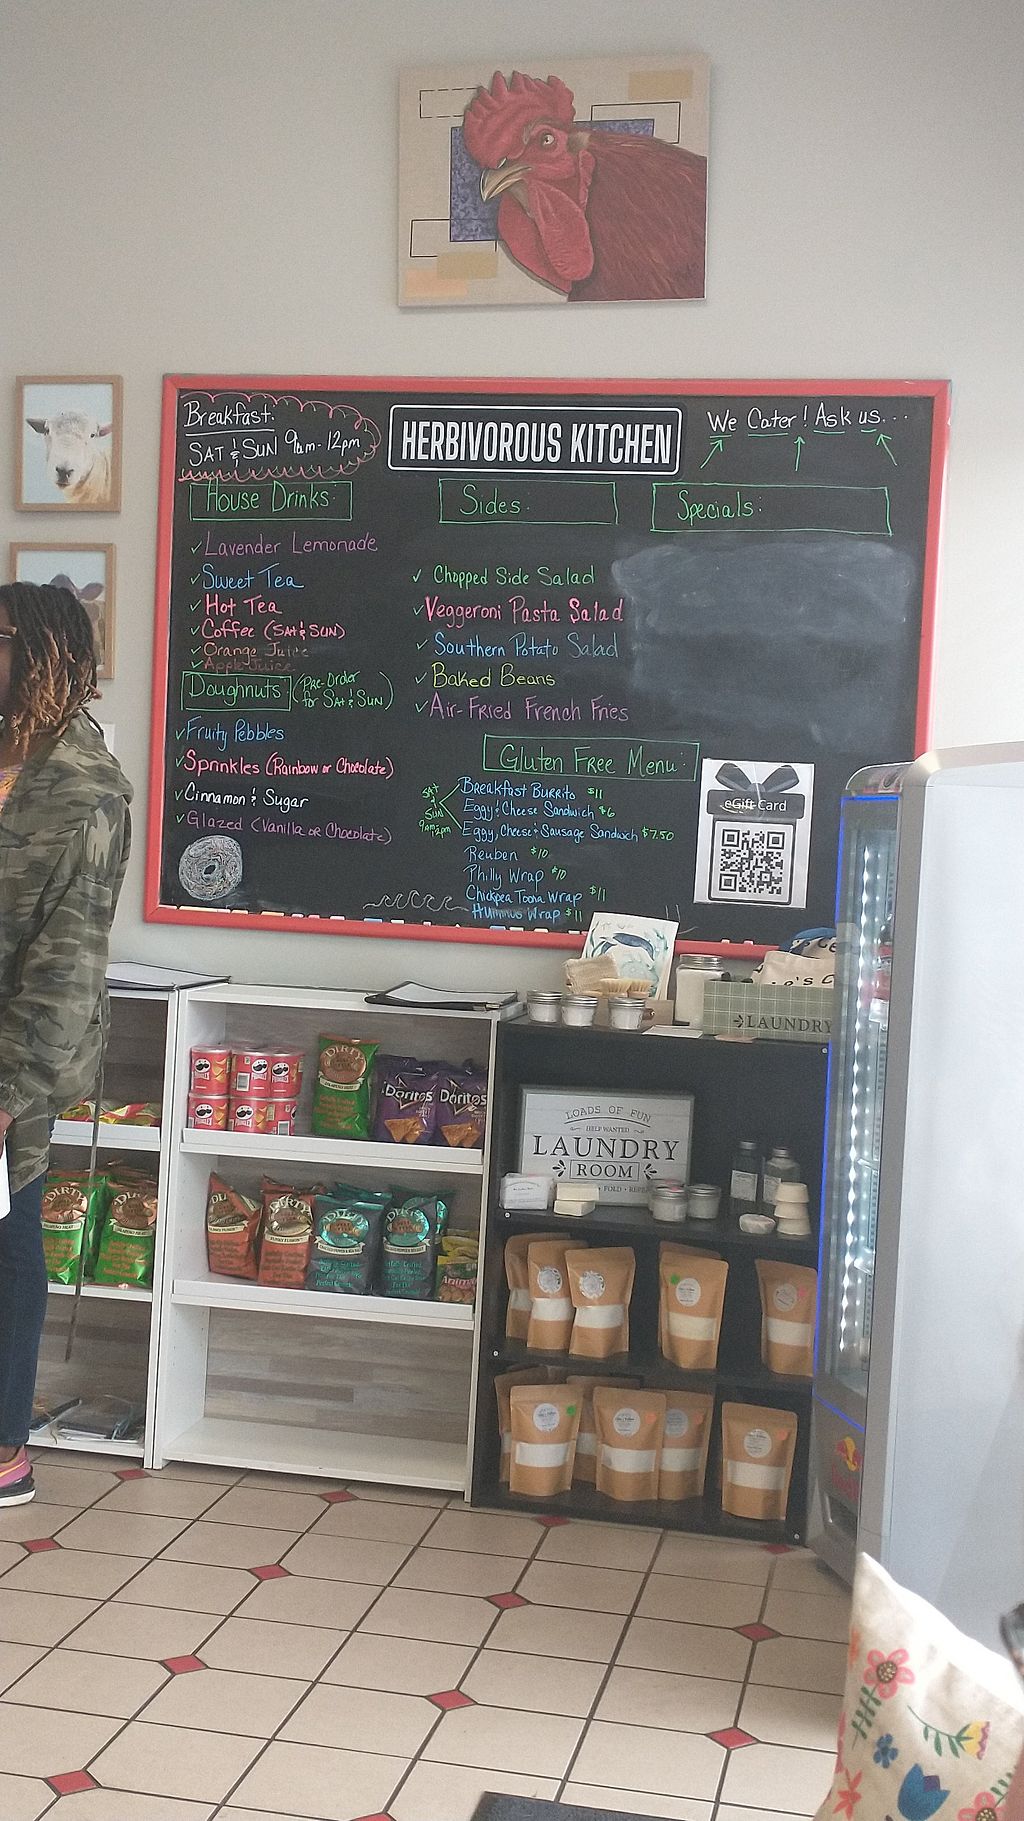 Breakfast:
SAT & SUN 9am-12pm
HERBIVOROUS KITCHEN
We Cater! Ask us...
House Drinks:
✓Lavender Lemonade
✓Sweet Tea
✓Hot Tea
✓Coffee (SAT & SUN)
✓Orange Juice
✓Apple Juice
Doughnuts: (Pre-Order
for SAT & SUN)
✓Fruity Pebbles
✓Sprinkles (Rainbow or Chocolate)
✓Cinnamon & Sugar
✓Glazed (Vanilla or Chocolate)
Sides:
✓ Chopped Side Salad
✓Veggeroni Pasta Salad
✓Southern Potato Salad
✓Baked Beans
✓Air-Fried French Fries
Specials:
Gluten Free Menu:
SAT
&
SUN
9am-
12pm
Breakfast Burrito $11
Eggy & Cheese Sandwich $6
Eggy, Cheese & Sausage Sandwich $7.50
Reuben $10
Philly Wrap $10
Chickpea Toona Wrap $11
Hummus Wrap $11
eGift Card
LAUNDRY
PRINGLES
DIRTY
Doritos
Doritos
LOADS OF FUN
HELP WANTED
LAUNDRY
ROOM
FOLD • REPEAT
DIRTY
DIRTY
DIRTY
DIRTY
Anima
Red Bull